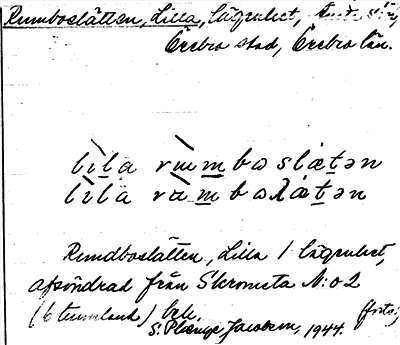 Rumboslätten, Lilla, lägenhet,
Örebro stad, Örebro län.
lìla rùmboslätən
lìla rùmboλätən
Rundboslätten, Lilla 1 lägenhet,
afsöndrad från Skromsta N:o 2
(6 tunnland) beb. (forts.)
S. Plænge Jacobson, 1944.